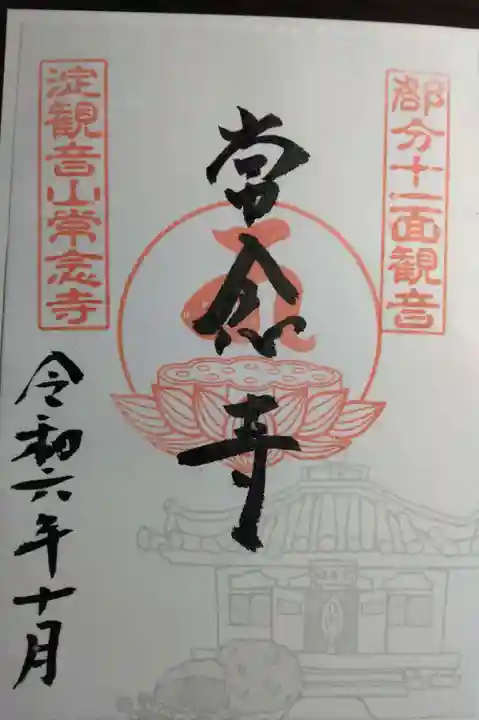 都分十一面観音
常念寺
淀観音山常念寺
令和六年十月